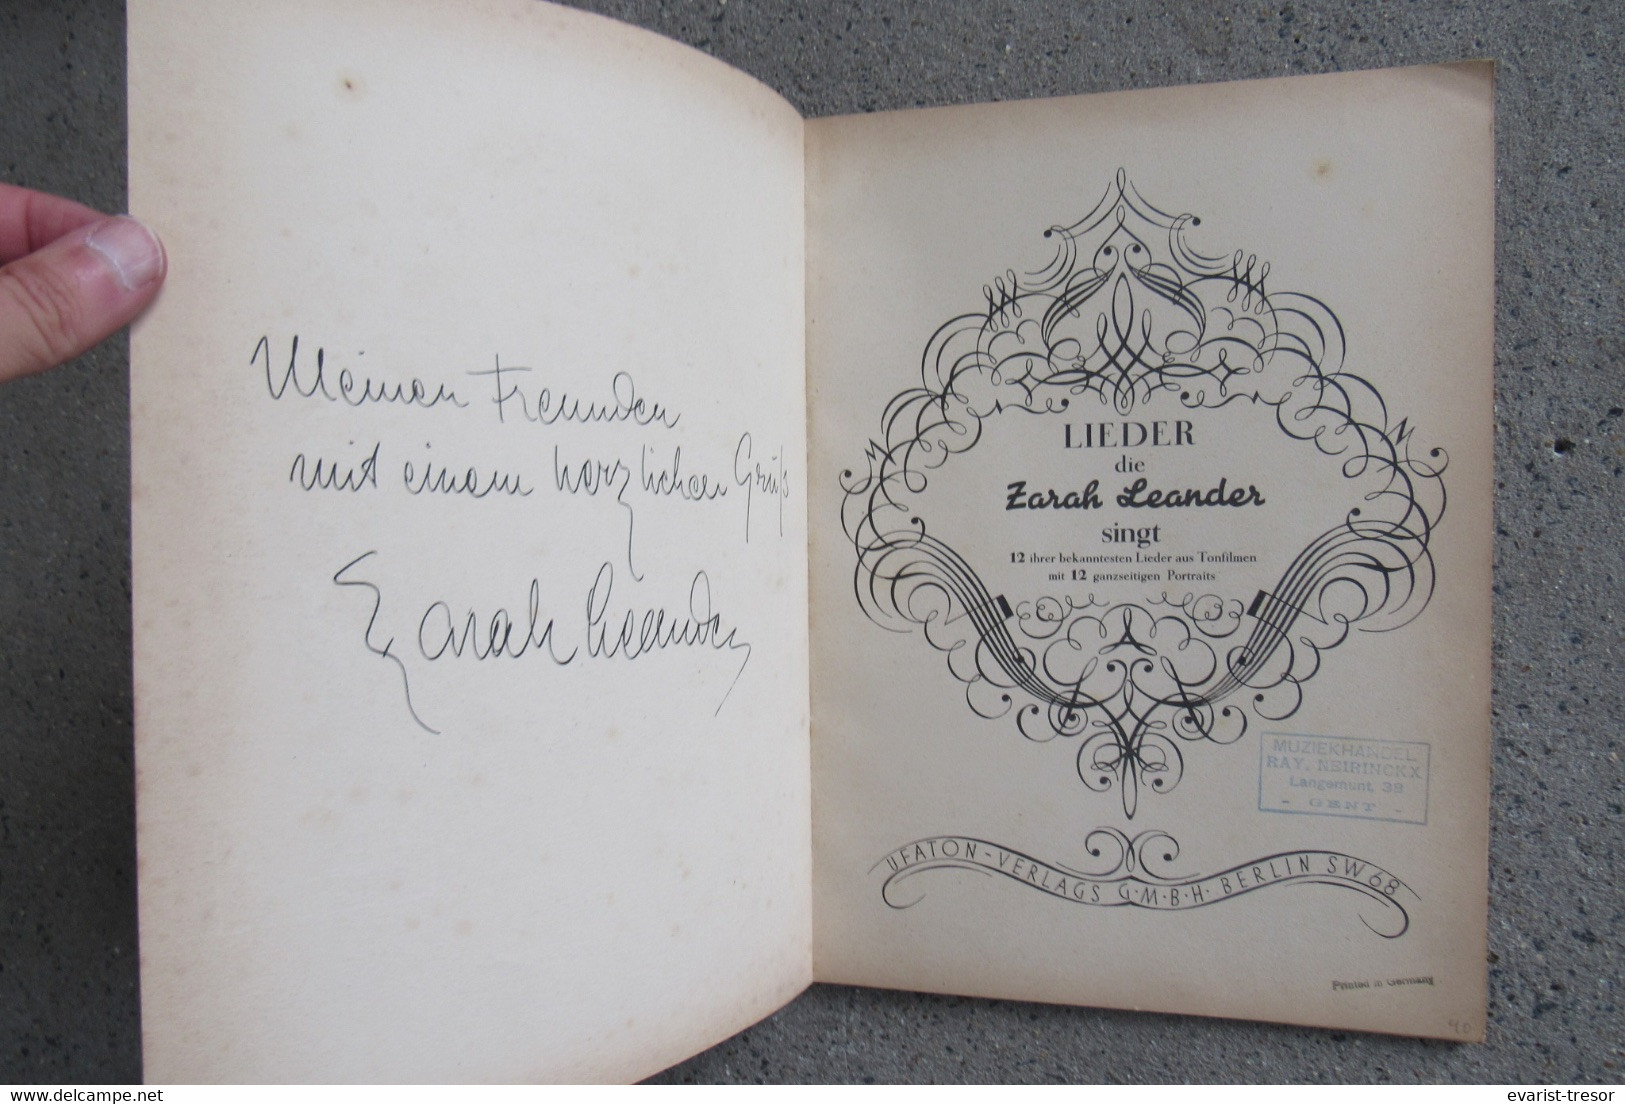 Meinen Freunden
mit einem herzlichen Gruß
Zarah Leander
LIEDER
die
Zarah Leander
singt
12 ihrer bekanntesten Lieder aus Tonfilmen
mit 12 ganzseitigen Portraits
MUZIEKHANDEL
RAY. NEIRINCKX
Langemunt, 39
- GENT -
UFATON-VERLAGS G·M·B·H· BERLIN SW 68
Printed in Germany
90
delcampe.net
evarist-tresor